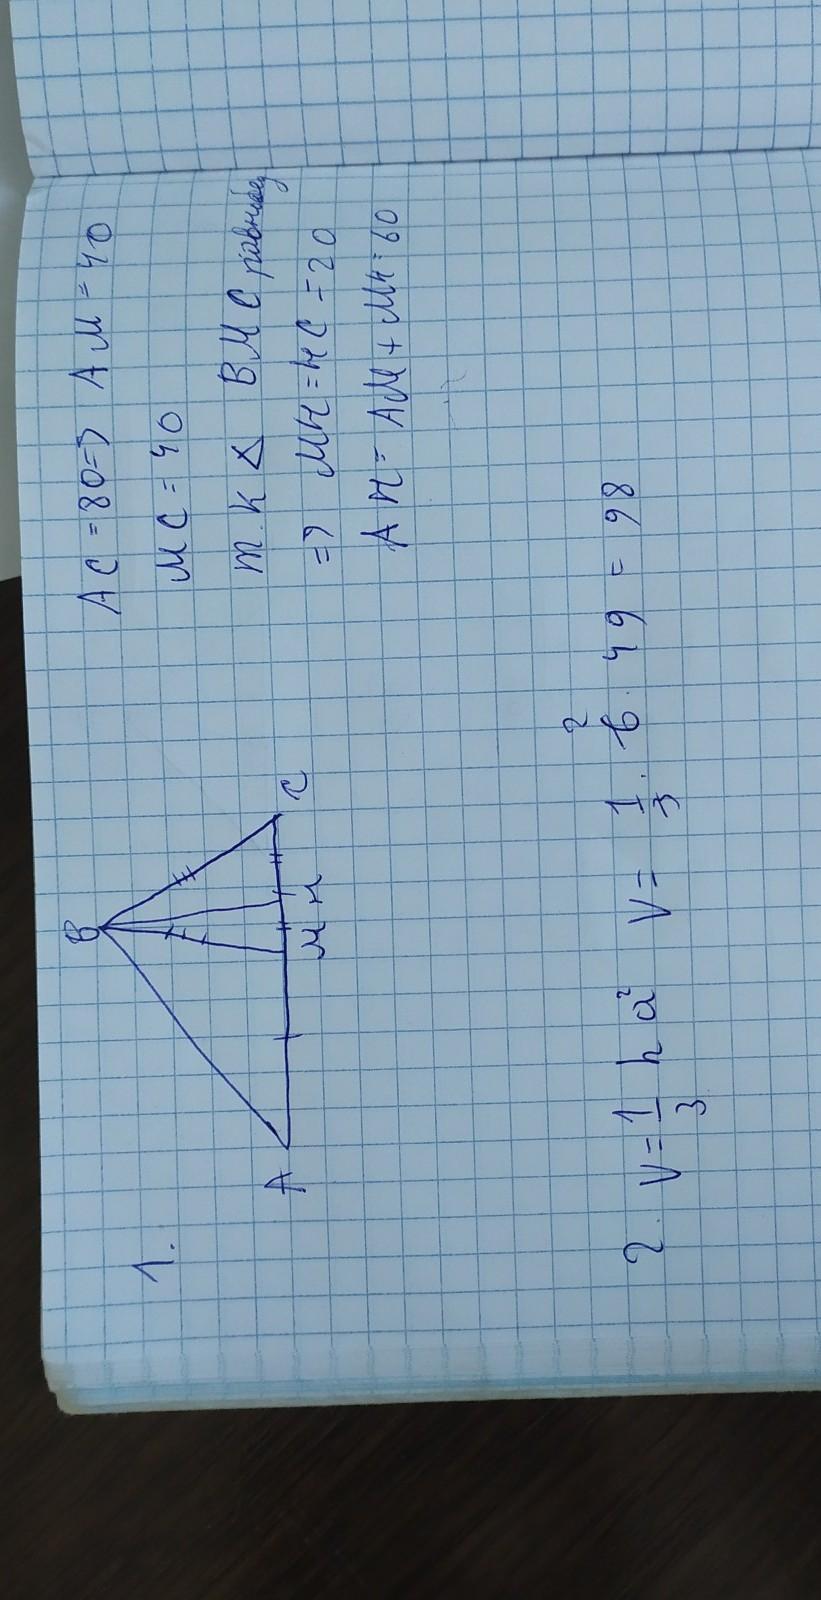 1.
B
A
M H
C
AC = 80 => AM = 40
MC = 40
т.к △ BMC равнобед
=> MH = HC = 20
AH = AM + MH = 60
2. V = 1/3 h a² V = 1/3 · 6 · 49 = 98
2